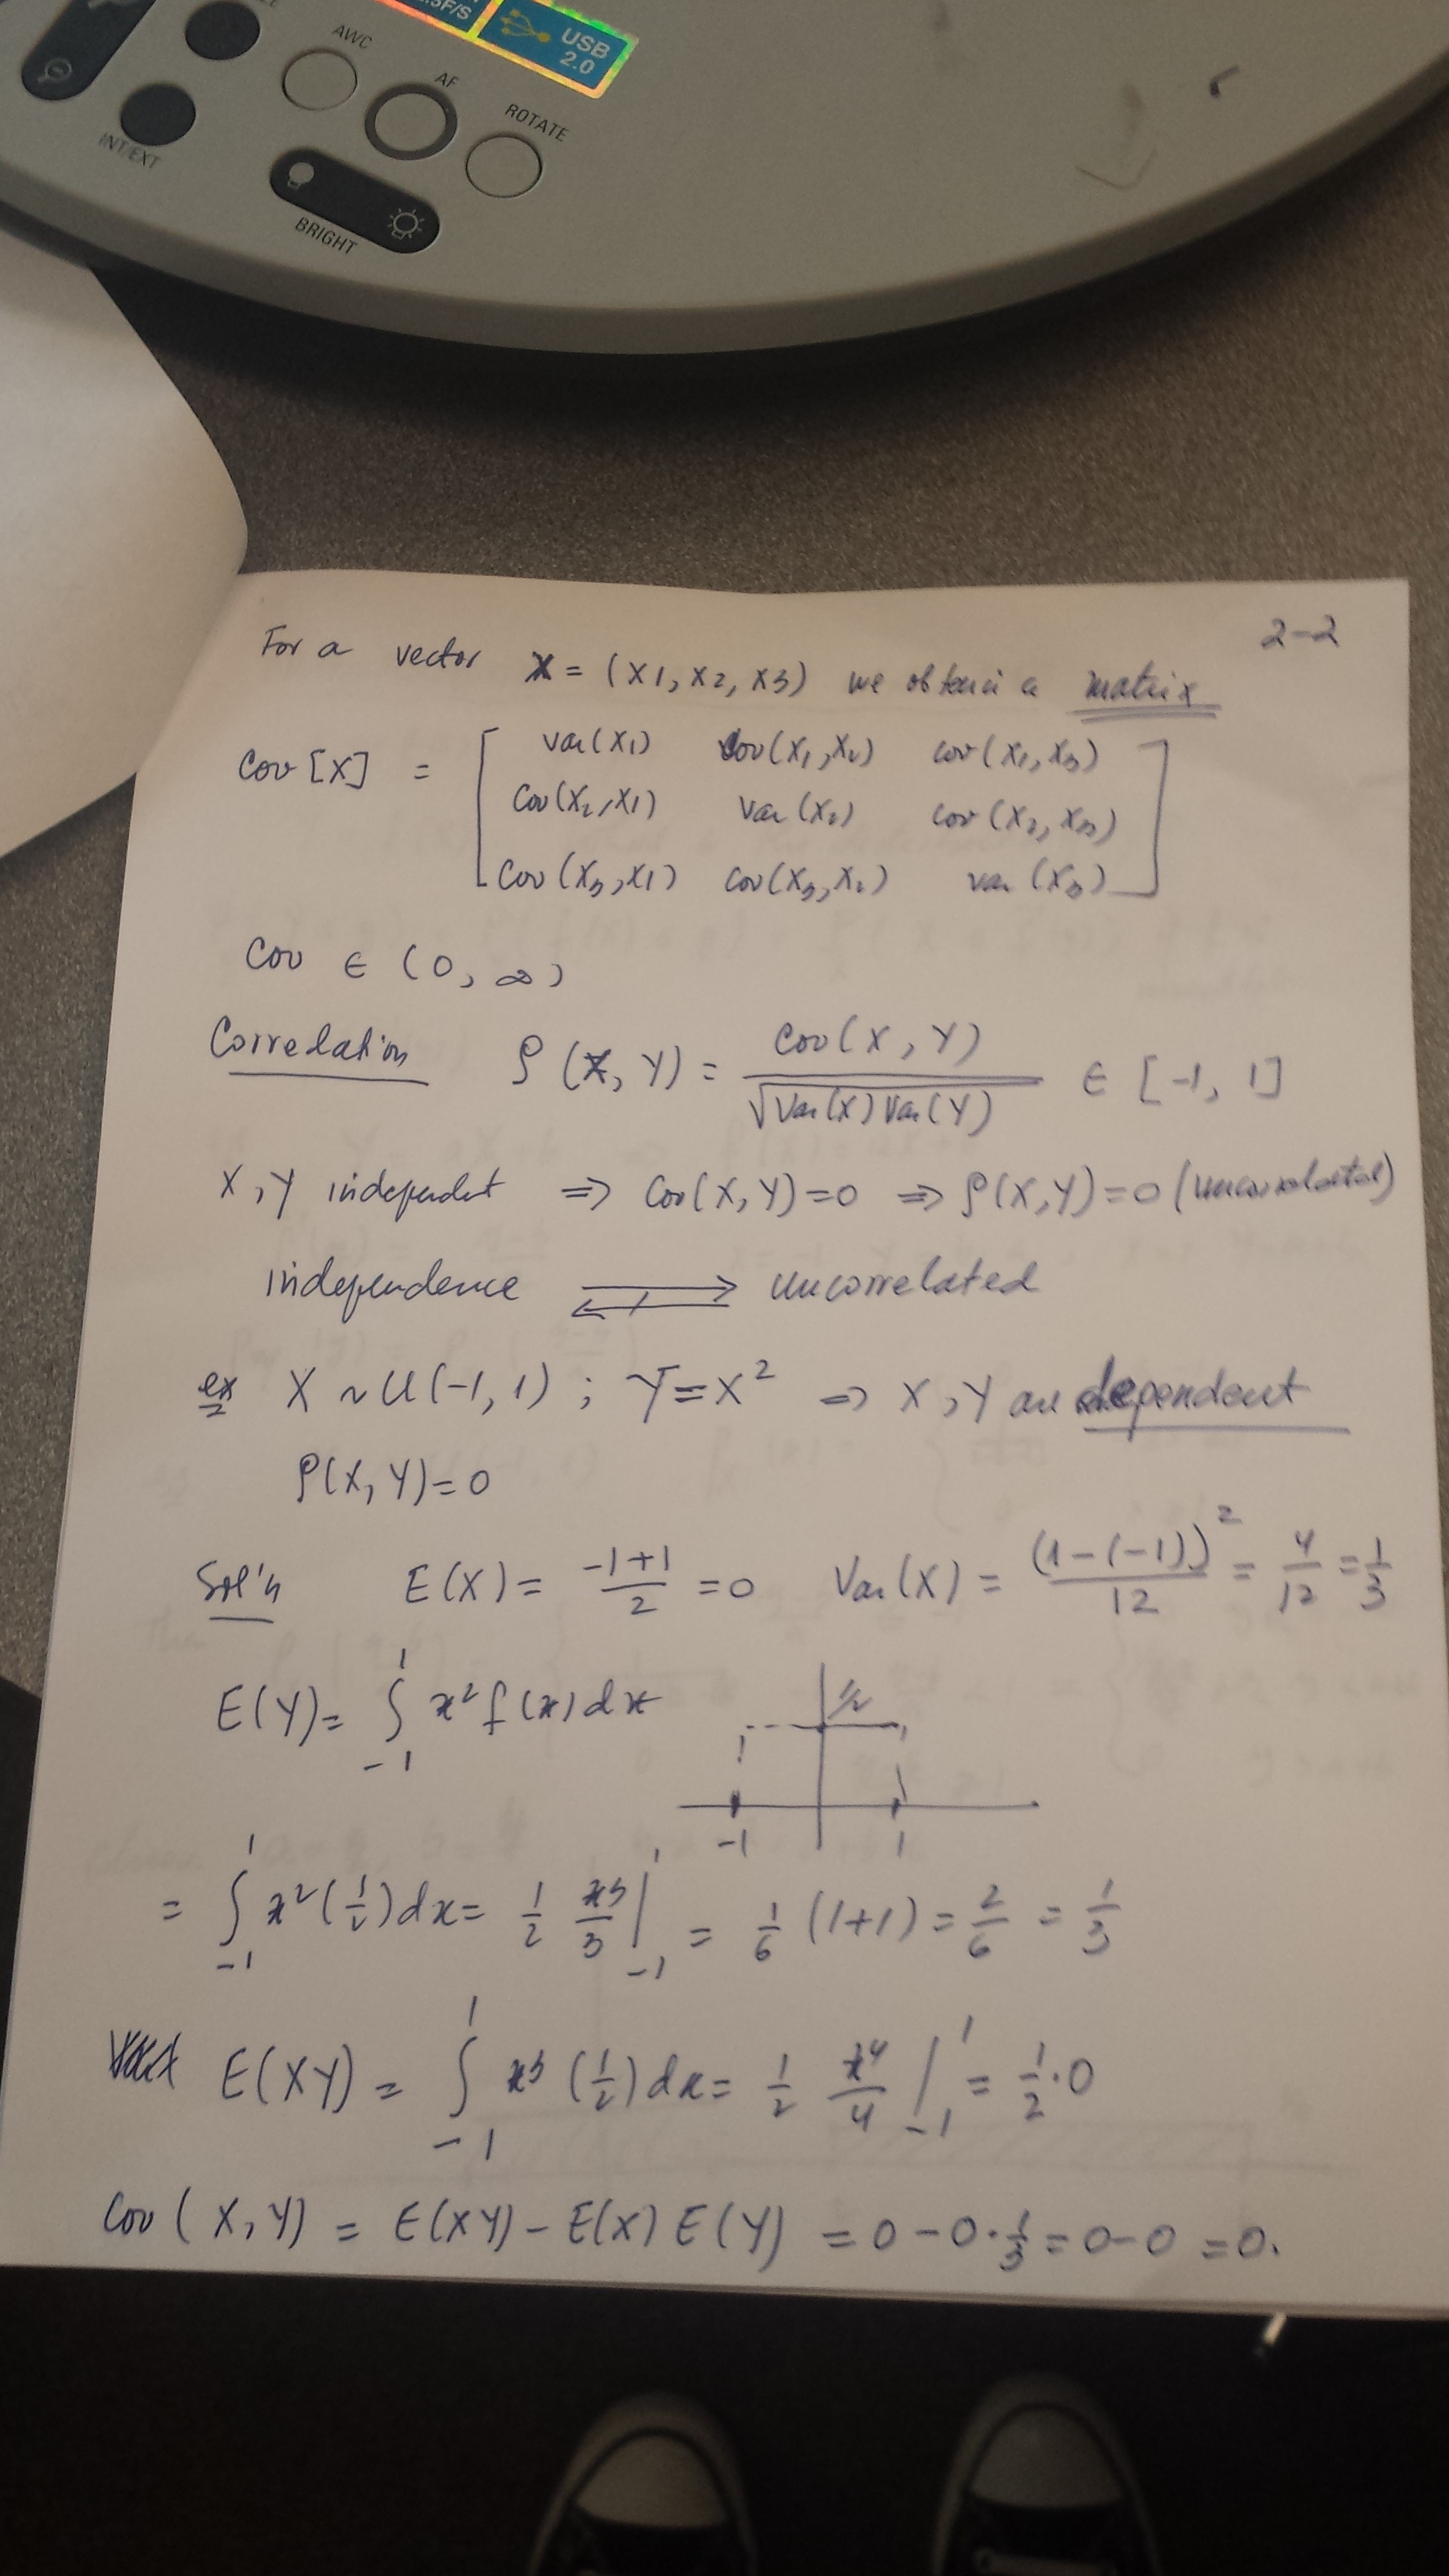 .5F/S
USB
2.0
AWC
AF
ROTATE
INT/EXT
BRIGHT
2-2
For a vector X = (X1, X2, X3) we obtain a matrix
Cov [X] = [ var(X1) Cov(X1, X2) cov(X1, X3)
Cov(X2, X1) var(X2) cov(X2, X3)
Cov(X3, X1) cov(X3, X2) var(X3) ]
Cov ∈ (0, ∞)
Correlation ρ(X, Y) = Cov(X, Y) / √Var(X) Var(Y) ∈ [-1, 1]
X, Y independent ⇒ Cov(X, Y) = 0 ⇒ ρ(X, Y) = 0 (uncorrelated)
independence ⇄ uncorrelated
ex X ~ U(-1, 1) ; Y = X² ⇒ X, Y are dependent
ρ(X, Y) = 0
Sol'n E(X) = (-1+1)/2 = 0 Var(X) = (1-(-1))²/12 = 4/12 = 1/3
E(Y) = ∫₋₁¹ x² f(x) dx
1/2
-1 1
= ∫₋₁¹ x² (1/2) dx = 1/2 x³/3 |₋₁¹ = 1/6 (1+1) = 2/6 = 1/3
E(XY) = ∫₋₁¹ x³ (1/2) dx = 1/2 x⁴/4 |₋₁¹ = 1/2 · 0
Cov(X, Y) = E(XY) - E(X) E(Y) = 0 - 0 · 1/3 = 0 - 0 = 0.